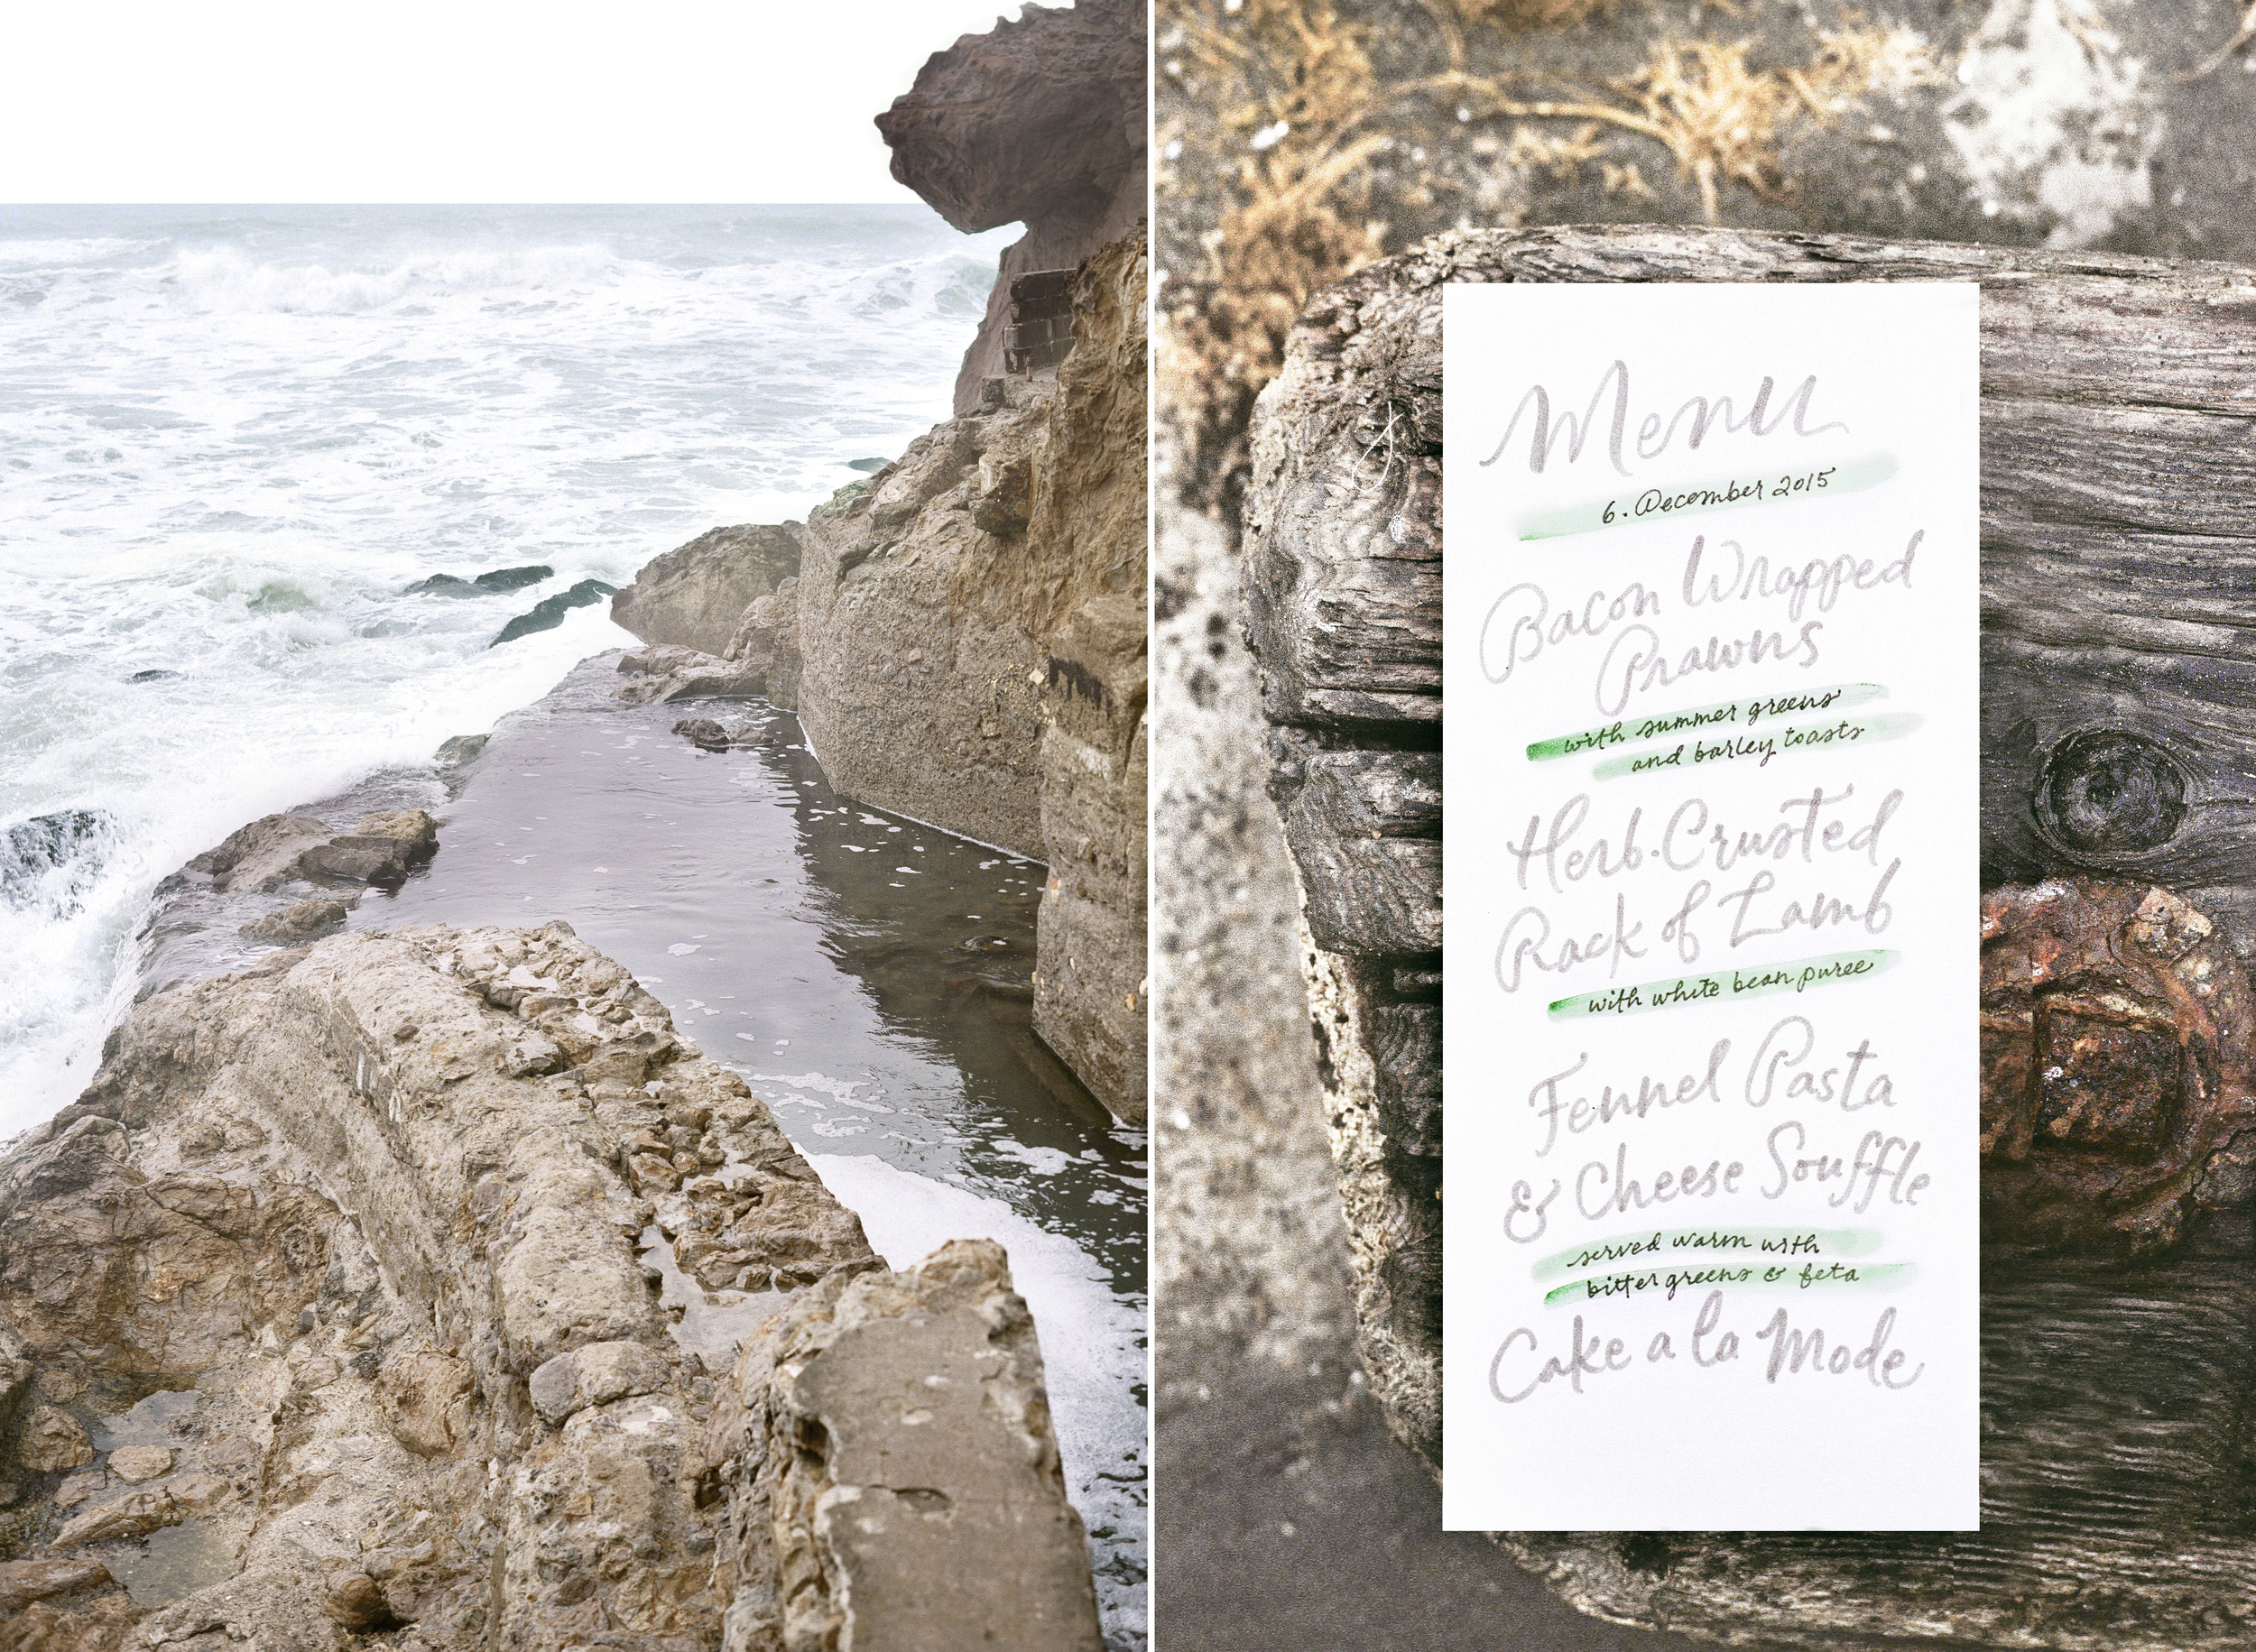 Menu
6. December 2015
Bacon Wrapped
Prawns
with summer greens
and barley toasts
Herb-Crusted
Rack of Lamb
with white bean puree
Fennel Pasta
& Cheese Souffle
served warm with
bitter greens & feta
Cake a la Mode